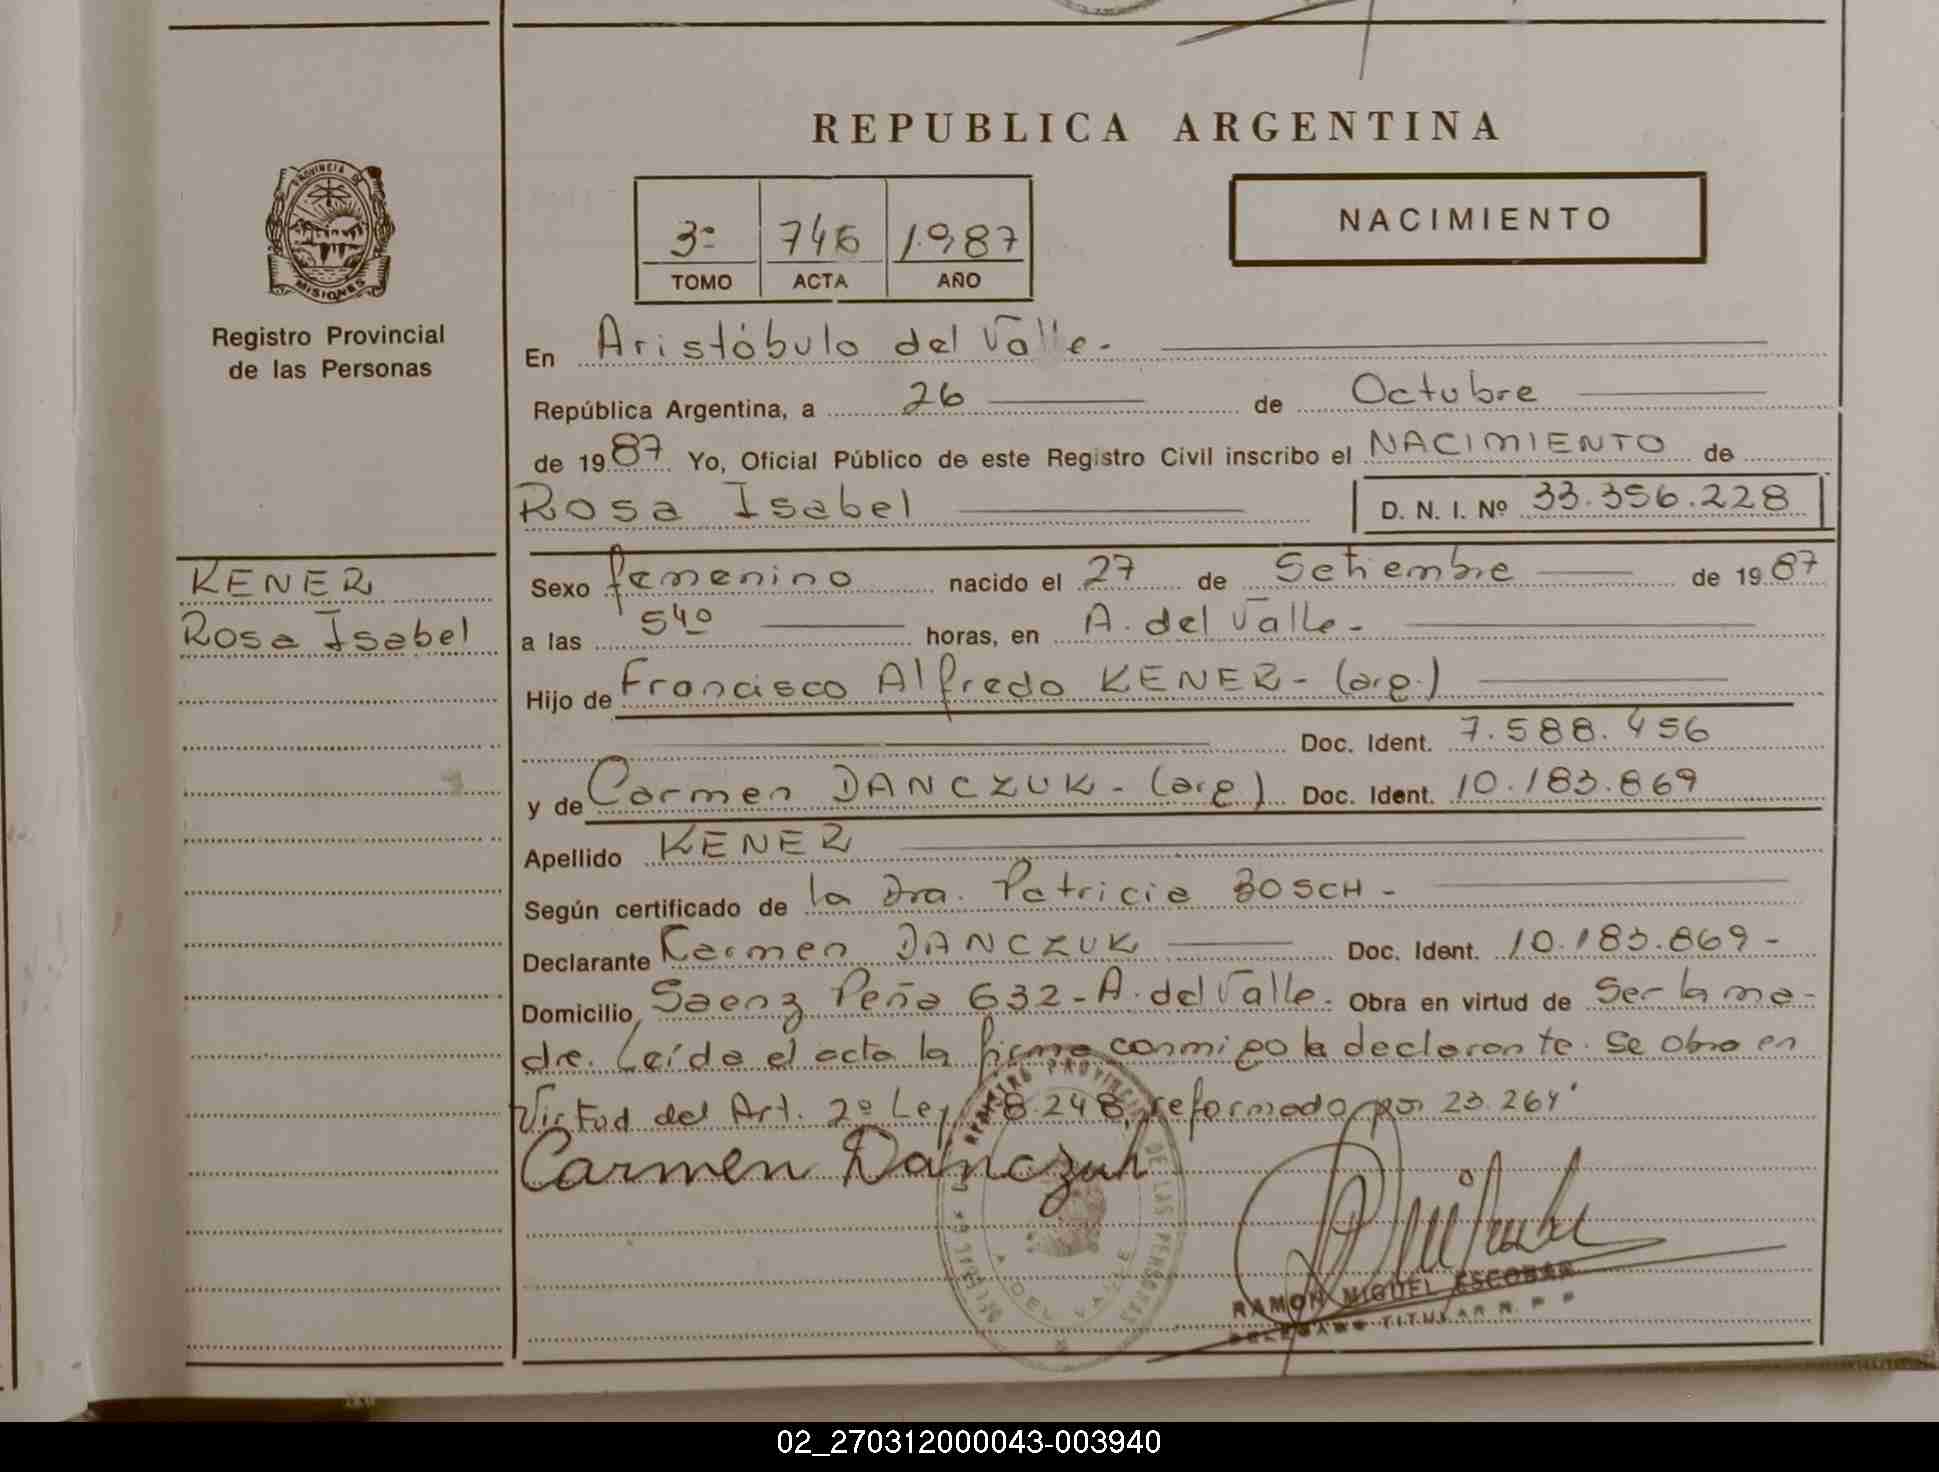 REPUBLICA ARGENTINA
PROVINCIA DE
MISIONES
Registro Provincial
de las Personas
3º 746 1987
TOMO ACTA AÑO
NACIMIENTO
En Aristóbulo del Valle.-
República Argentina, a 26 de Octubre
de 1987 Yo, Oficial Público de este Registro Civil inscribo el NACIMIENTO de
Rosa Isabel D. N. I. Nº 33.356.228
KENER
Rosa Isabel
Sexo femenino nacido el 27 de Setiembre de 1987
a las 5⁴⁰ horas, en A. del Valle.-
Hijo de Francisco Alfredo KENER- (arg.)
Doc. Ident. 7.588.456
y de Carmen DANCZUK - (arg) Doc. Ident. 10.183.869
Apellido KENER
Según certificado de la Dra. Patricia BOSCH -
Declarante Carmen DANCZUK Doc. Ident. 10.183.869-
Domicilio Saenz Peña 632-A. del Valle. Obra en virtud de Ser la ma-
dre. Leída el acta la firma conmigo la declarante. Se obra en
Virtud del Art. 2º Ley 18.248, reformado por 23.264.
Carmen Danczuk
REGISTRO PROVINCIAL DE LAS PERSONAS
A. DEL VALLE
RAMON MIGUEL ESCOBAR
DELEGADO TITULAR R. P. P.
02_270312000043-003940